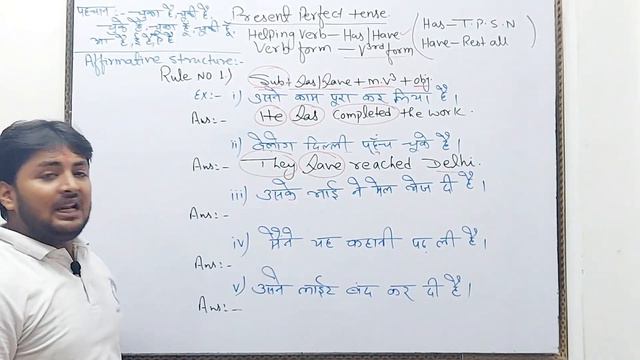 पहचान :- चुका है, चुकी है,
चुके हैं, चुका हूँ, चुकी हूँ,
Present Perfect tense.
Helping verb - Has/Have
Verb form - V³rd form
Has - T.P.S.N
Have - Rest all
Affirmative structure:-
Rule NO 1) Sub + Has/Have + m.v³ + obj.
Ex:- i) उसने काम पूरा कर लिया है।
Ans:- He has completed the work.
ii) वेलोग दिल्ली पहुँच चुके है।
Ans:- They have reached Delhi.
iii) उसके भाई ने मेल भेज दी है।
Ans:-
iv) मैंने यह कहानी पढ़ ली है।
Ans:-
v) उसने लाईट बंद कर दी है।
Ans:-